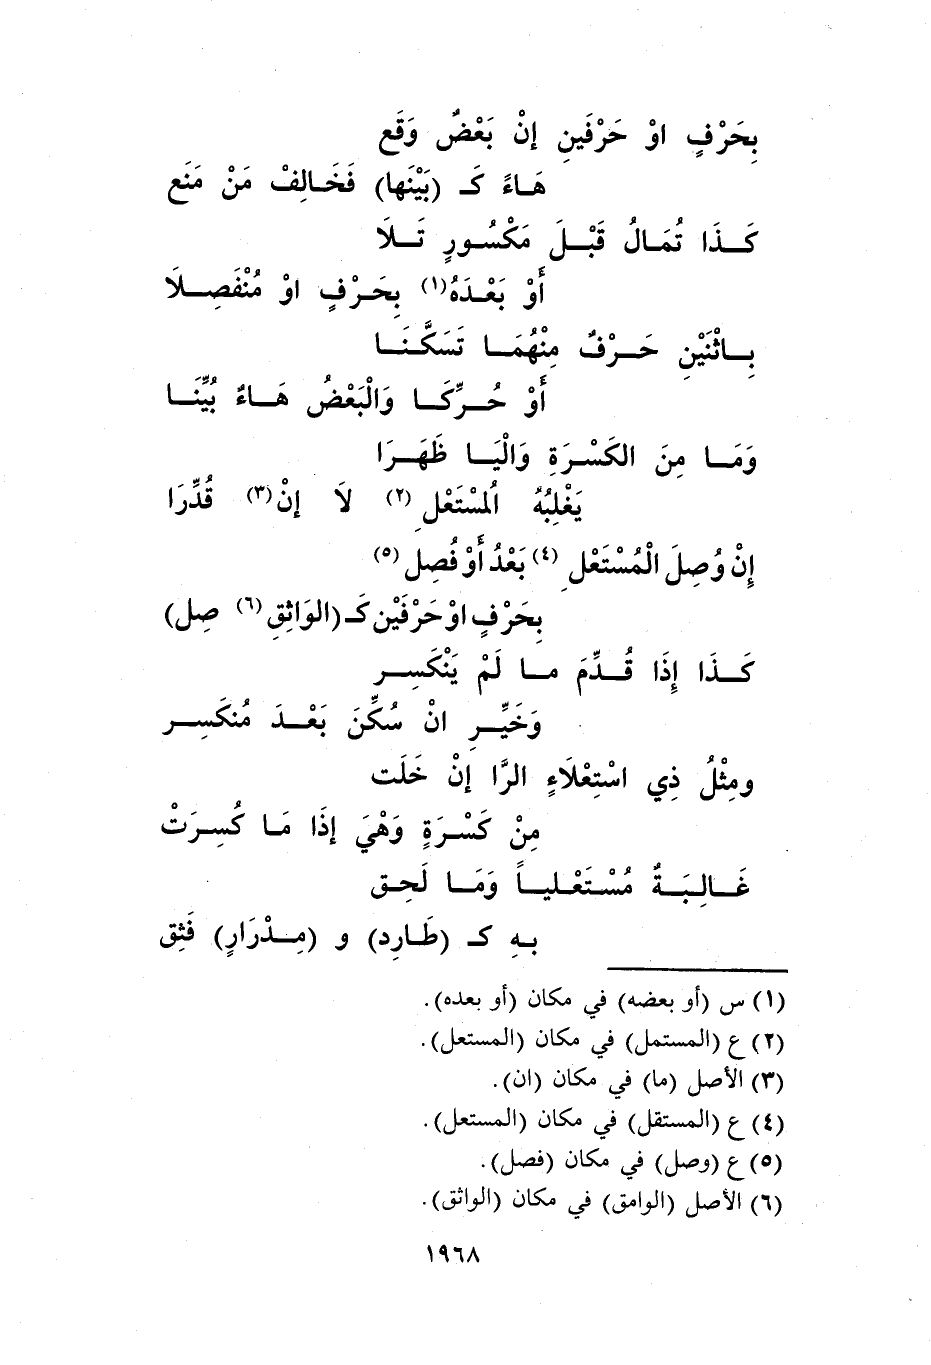 بِحَرْفٍ اوْ حَرْفَينِ إنْ بَعْضٌ وَقَع
هَاءً كَـ (بَيْنَها) فَخَالِفْ مَنْ مَنَع
كَذَا تُمَالُ قَبْلَ مَكْسُورٍ تَلَا
أَوْ بَعْدَهُ (١) بِحَرْفٍ اوْ مُنْفَصِلَا
بِاثْنَيْنِ حَرْفٌ مِنْهُمَا تَسَكَّنَا
أَوْ حُرِّكَا وَالْبَعْضُ هَاءٌ بُيِّنَا
وَمَا مِنَ الكَسْرَةِ وَالْيَا ظَهَرَا
يَغْلِبُهُ اُلمْسْتَعْلِ (٢) لَا إنْ (٣) قُدِّرَا
إِنْ وُصِلَ الْمُسْتَعْلِ (٤) بَعْدُ أَوْ فُصِل (٥)
بِحَرْفٍ اوْ حَرْفَيْنِ كَـ (الوَاثِقِ (٦) صِل)
كَذَا إِذَا قُدِّمَ ما لَمْ يَنْكَسِر
وَخَيِّرِ انْ سُكِّنَ بَعْدَ مُنكَسِر
ومِثْلُ ذِي اسْتِعْلَاءٍ الرَّا إنْ خَلَت
مِنْ كَسْرَةٍ وَهْيَ إذَا مَا كُسِرَتْ
غَالِبَةٌ مُسْتَعْلِياً وَمَا لَحِق
بهِ كـ (طَارِدٍ) و (مِدْرَارٍ) فَثِق
(١) س (أو بعضه) في مكان (أو بعده).
(٢) ع (المستمل) في مكان (المستعل).
(٣) الأصل (ما) في مكان (ان).
(٤) ع (المستقل) في مكان (المستعل).
(٥) ع (وصل) في مكان (فصل).
(٦) الأصل (الوامق) في مكان (الواثق).
١٩٦٨